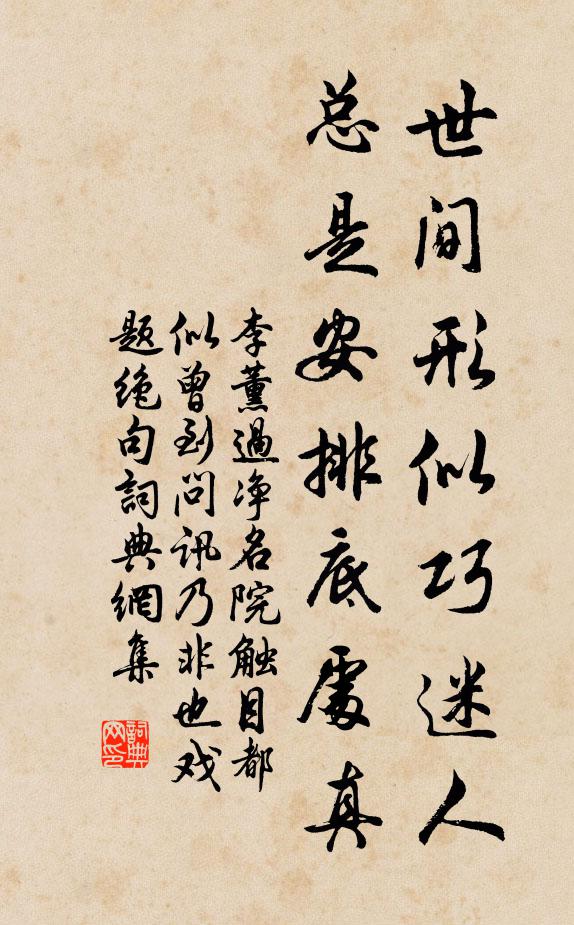 世间形似巧迷人
总是安排底處真
李薰過净名院触目都
似曾到问讯乃非也戏
题绝句詞典網集
詞典網印